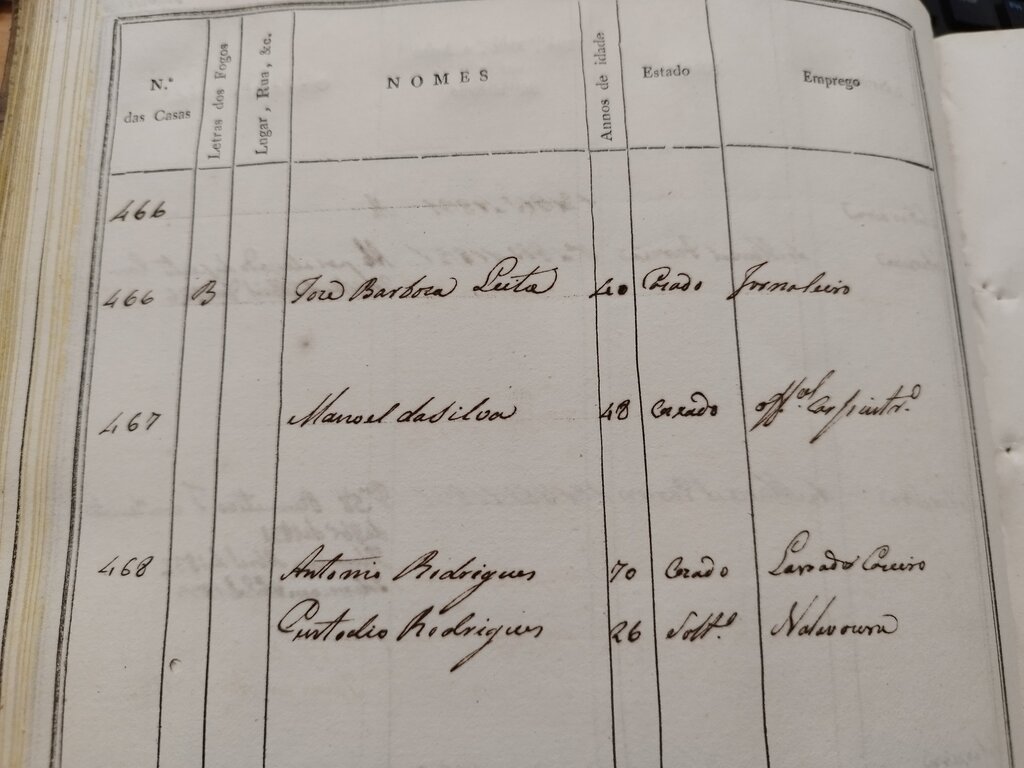 N.º das Casas Letras dos Fogos Lugar, Rua, &c. NOMES Annos de idade Estado Emprego
466
466 B Joze Barboza Leite 40 Cazado Jornaleiro
467 Manoel da Silva 48 Cazado off.al Carpintr.o
468 Antonio Rodrigues 70 Cazado Lavrador Cazeiro
Custodio Rodrigues 26 Solt.o Na lavoura